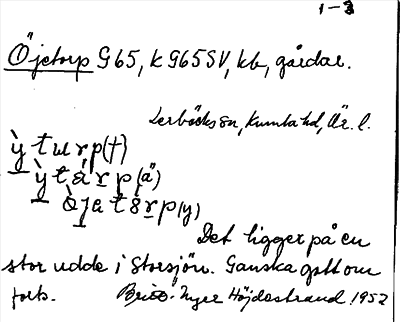 1-3
Öjetorp G65, k G65SV, kb, gårdar.
Lerbäcks sn, Kumla hd, Är. l.
ỳturp(t)
ỳtárp(ä)
òjatsrp(y)
Det ligger på en
stor udde i Storsjön. Ganska gott om
forts. Britt Nyer Höjdestrand 1952